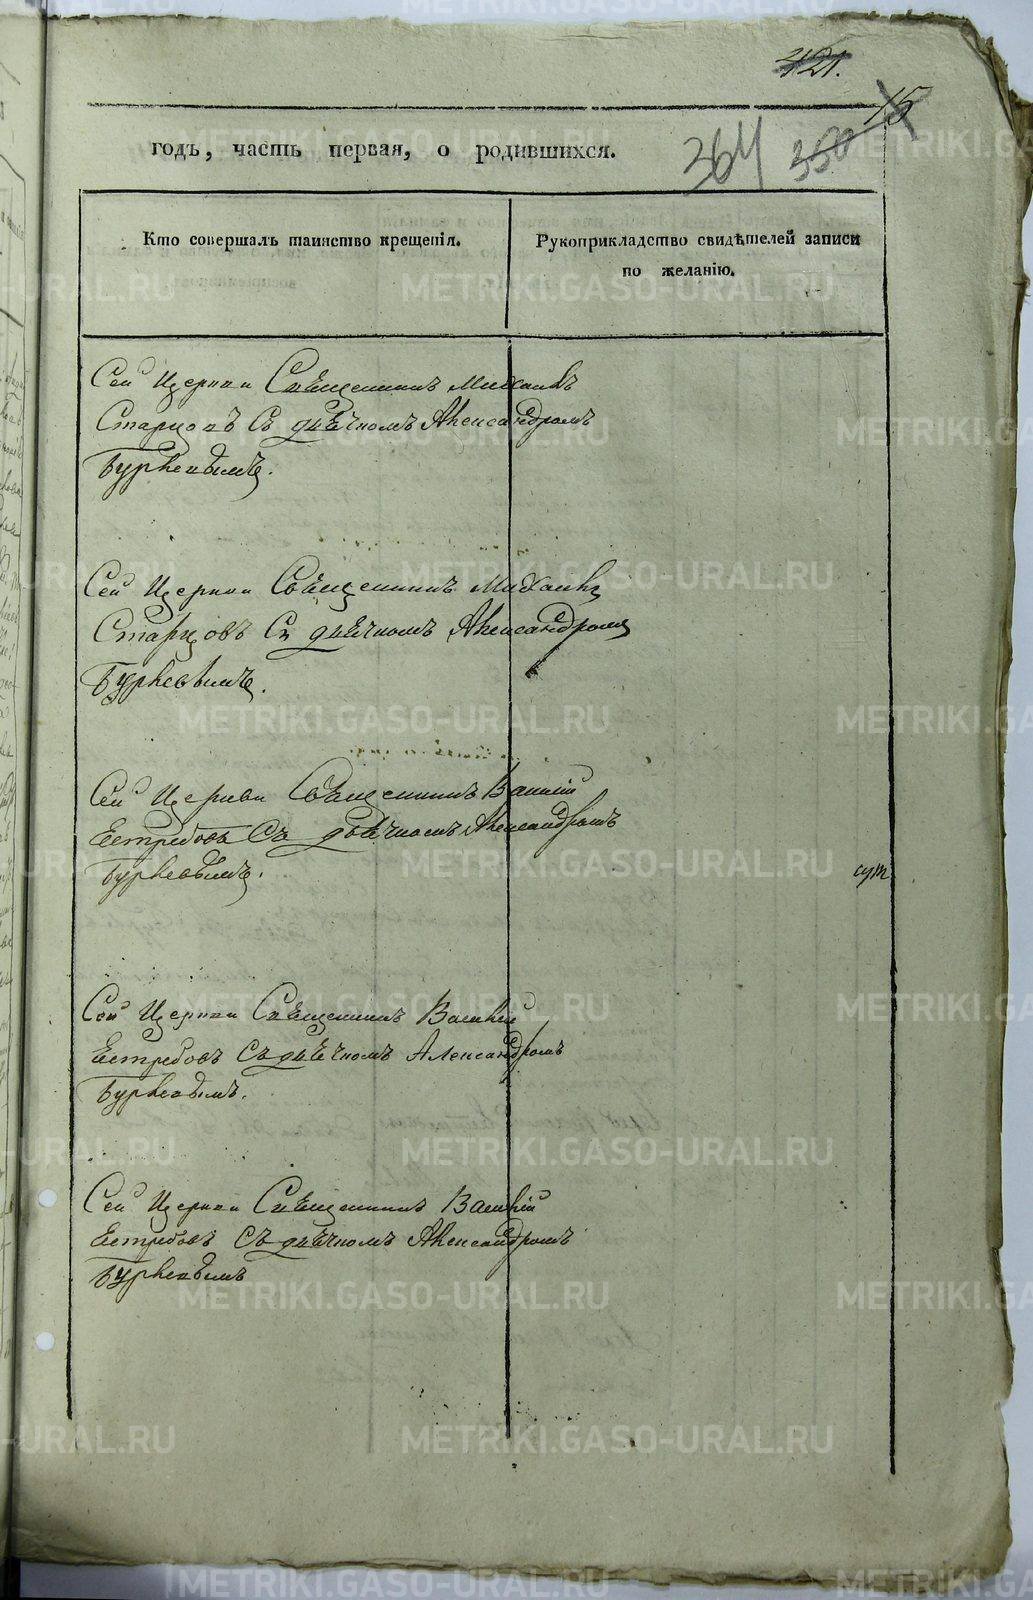 421.
15
364 350
годъ, часть первая, о родившихся.
Кто совершалъ таинство крещенія.
Рукоприкладство свидѣтелей записи
по желанію.
Сей Церкви Священникъ Михаилъ
Старцовъ Съ дьячкомъ Александромъ
Сей Церкви Священникъ Михаилъ
Старцовъ Съ дьячкомъ Александромъ
Сей Церкви Священникъ Василій
Естребовъ Съ дьячкомъ Александромъ
Сей Церкви Священникъ Василій
Естребовъ Съ дьячкомъ Александромъ
Сей Церкви Священникъ Василій
Естребовъ Съ дьячкомъ Александромъ
METRIKI.GASO-URAL.RU